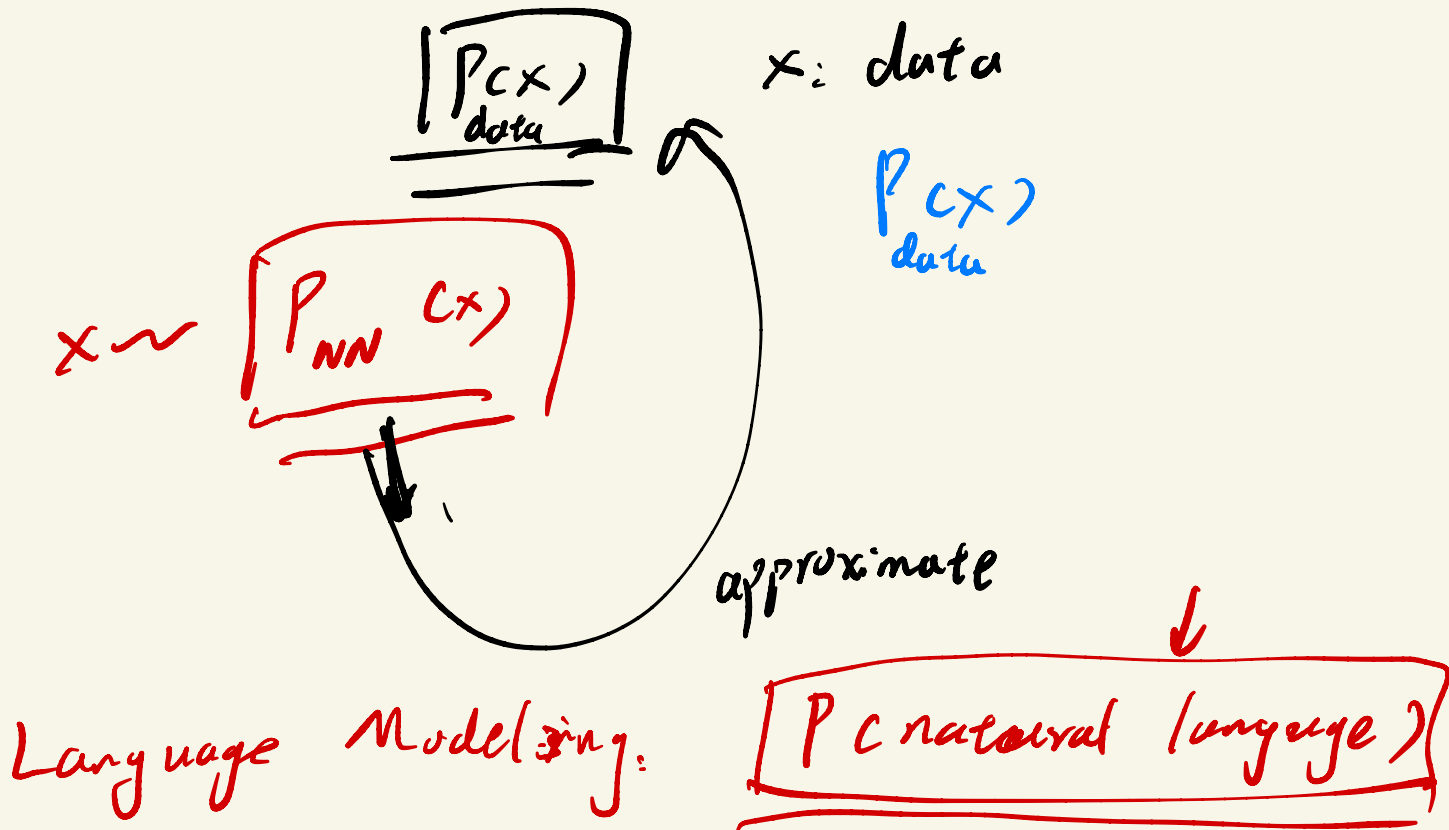 P(x) x: data
data
P(x)
data
x ~ P_NN (x)
approximate
Language Modeling: P(natural language)